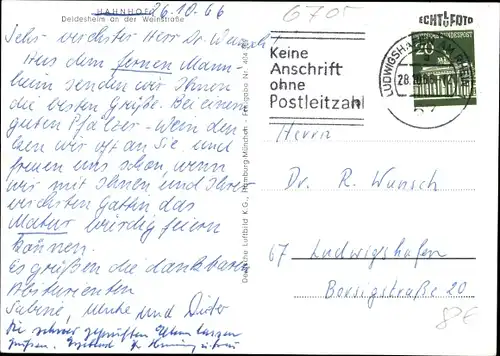 HAHNHOF 26.10.66
Deidesheim an der Weinstraße
Sehr verehrter Herr Dr. Wunsch!
Aus dem fernen Mann-
heim senden wir Ihnen
die besten Grüße. Bei einem
guten Pfälzer-Wein den-
ken wir oft an Sie und
freuen uns schon, wenn
wir mit Ihnen und Ihrer
verehrten Gattin das
Matur würdig feiern
können.
Es grüßen die dankbaren
Abiturienten
Sabine, und Dieter
Die schwer geprüften Eltern lassen
grüßen.
Deutsche Luftbild K.G., Hamburg-München - Freigabe Nr. 404
6705
Keine
Anschrift
ohne
Postleitzahl
ECHT FOTO
DEUTSCHE BUNDESPOST
20
LUDWIGSHAFEN AM RHEIN
28.10.66
Herrn
Dr. R. Wunsch
67 Ludwigshafen
Borsigstraße 20
8€